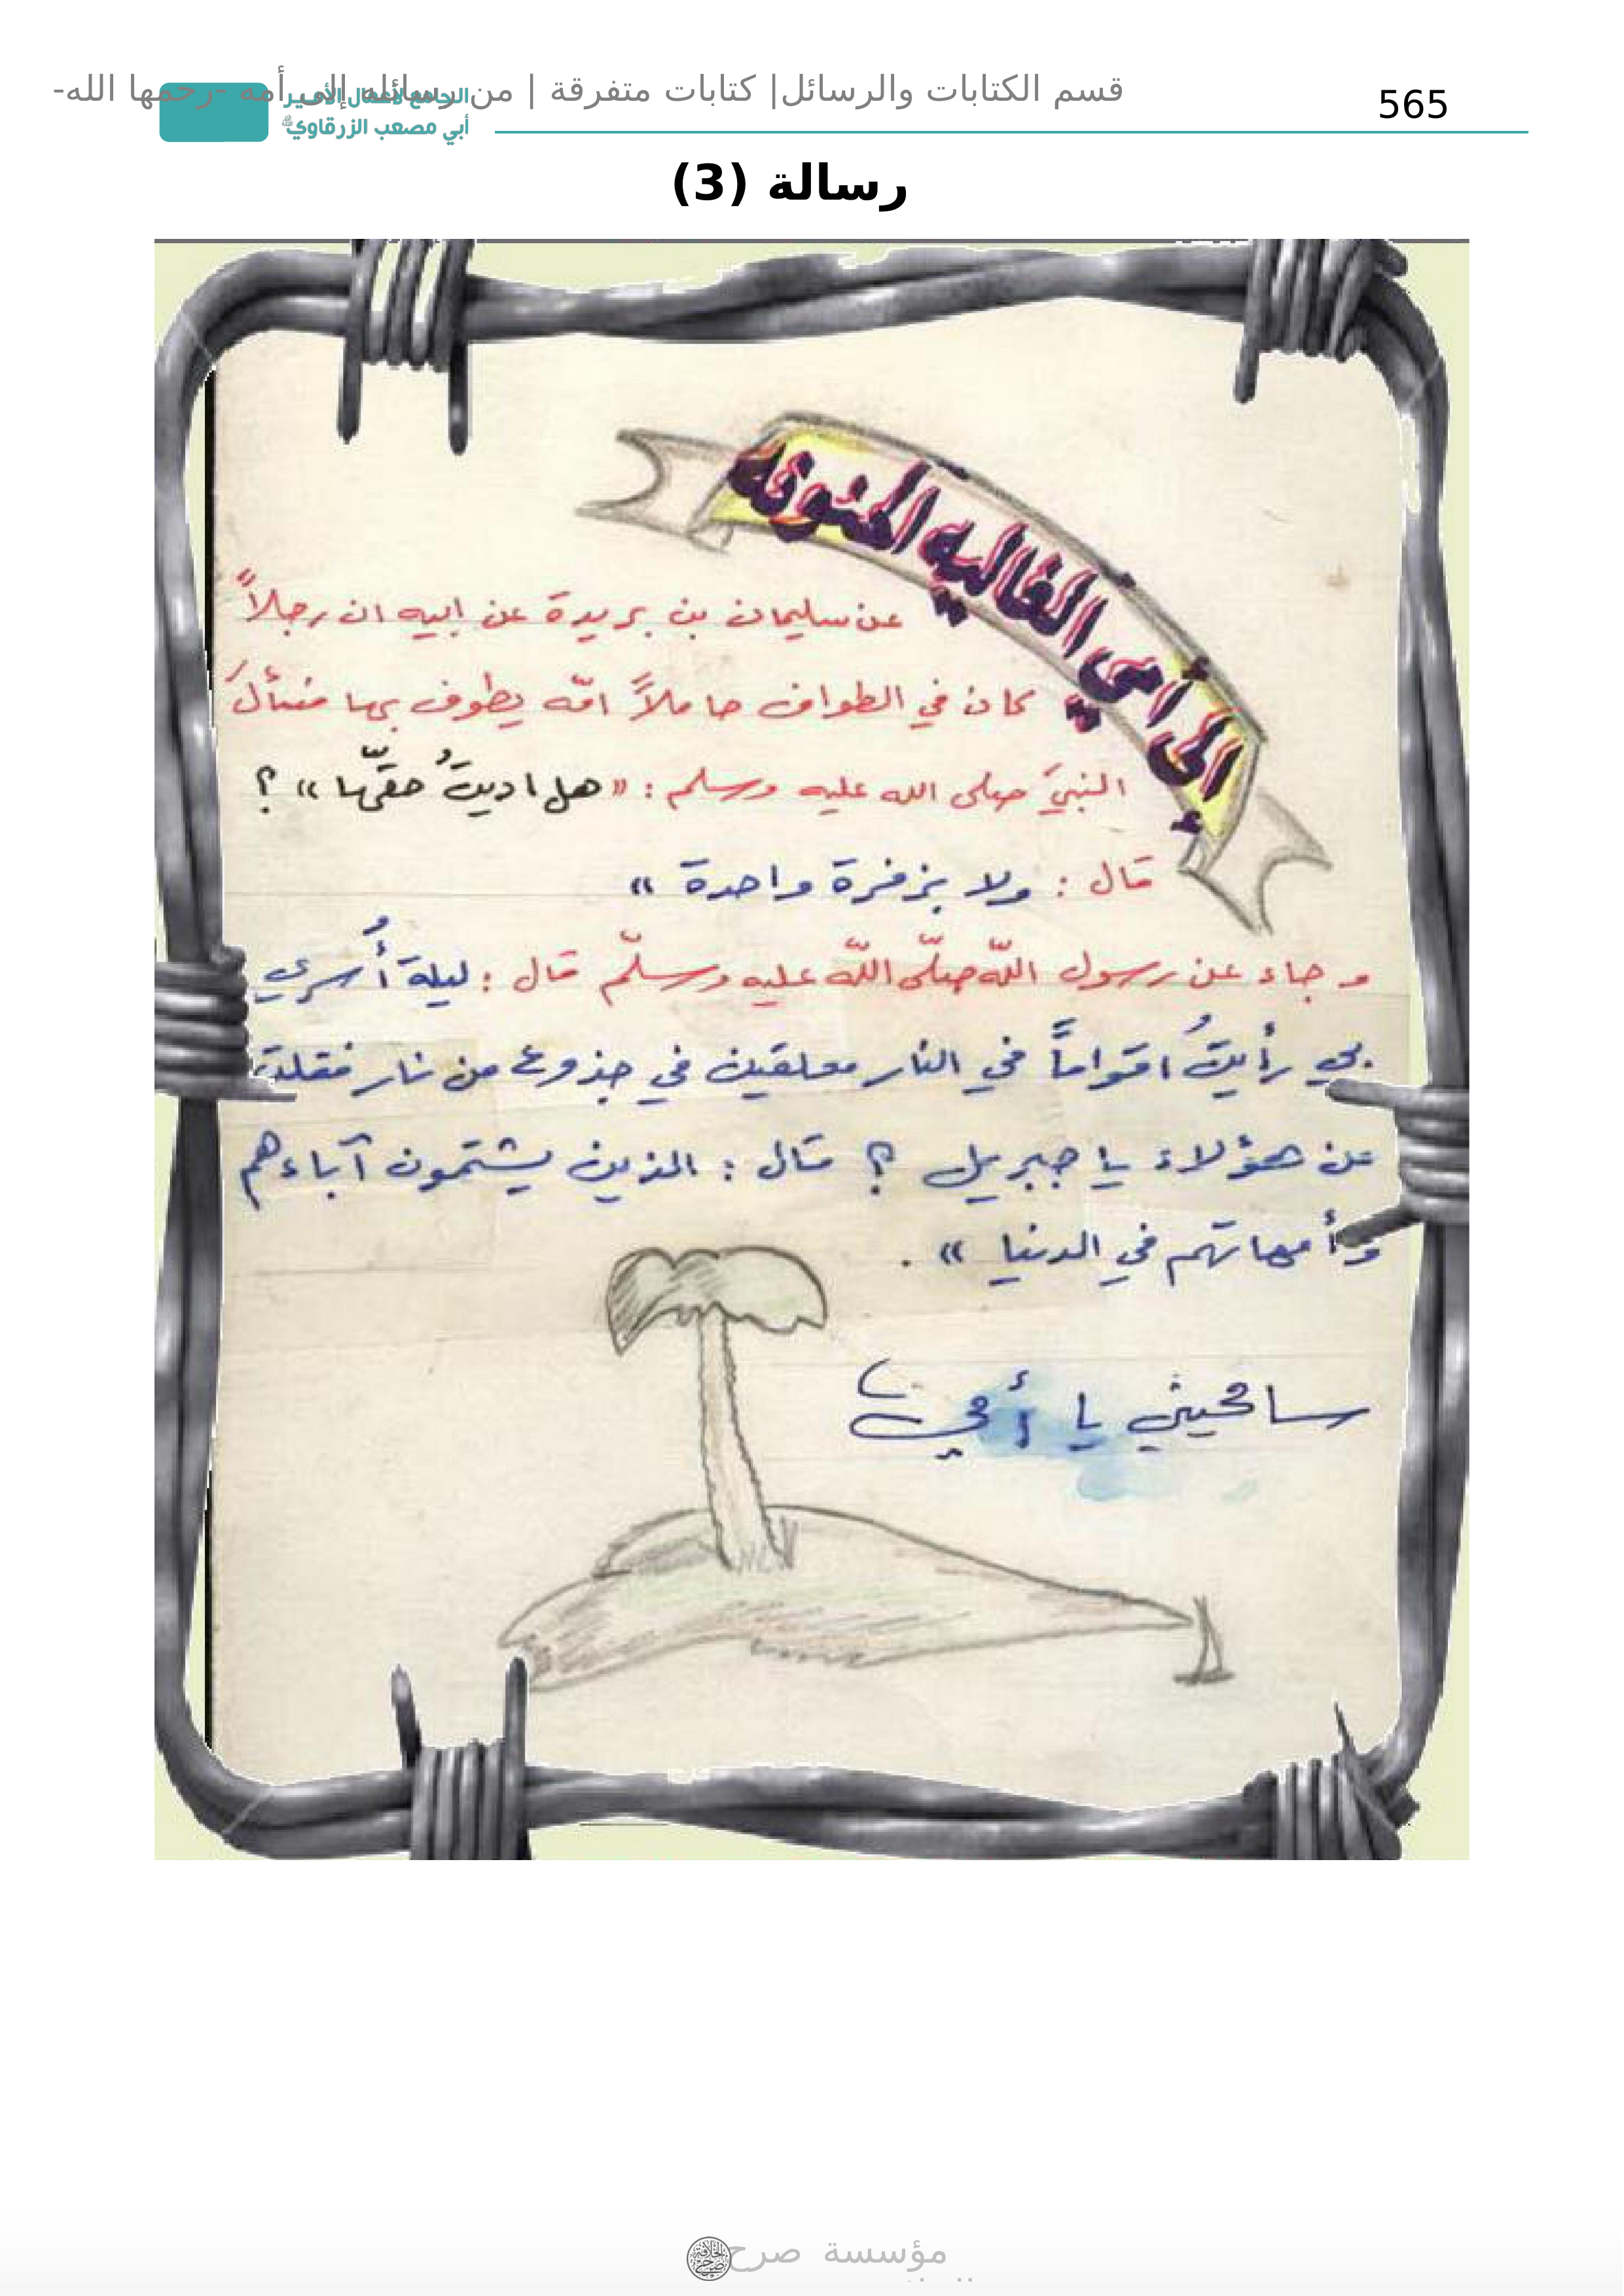 قسم الكتابات والرسائل| كتابات متفرقة | من رسائله إلى أمه -رحمها الله-
565
الجامع لأعمال الأمير
أبي مصعب الزرقاوي
رسالة (3)
إلى امي الغاليه الحنونه
عن سليمان بن بريدة عن ابيه ان رجلاً
كان في الطواف حاملاً امّه يطوف بها فسألَ
النبيَ صلى الله عليه وسلم : «هل اديتُ حقّها» ؟
قال : ولا بزفرة واحدة »
و جاء عن رسول اللّه صلّى اللّه عليه وسلّم قال : ليلة أُسري
بي رأيتُ اقواماً في النار معلقين في جذوع من نار فقلت
عن هؤلاء يا جبريل ؟ قال : الذين يشتمون آباءهم
وأمهاتهم في الدنيا » .
سامحيني يا أمي
مؤسسة صرح